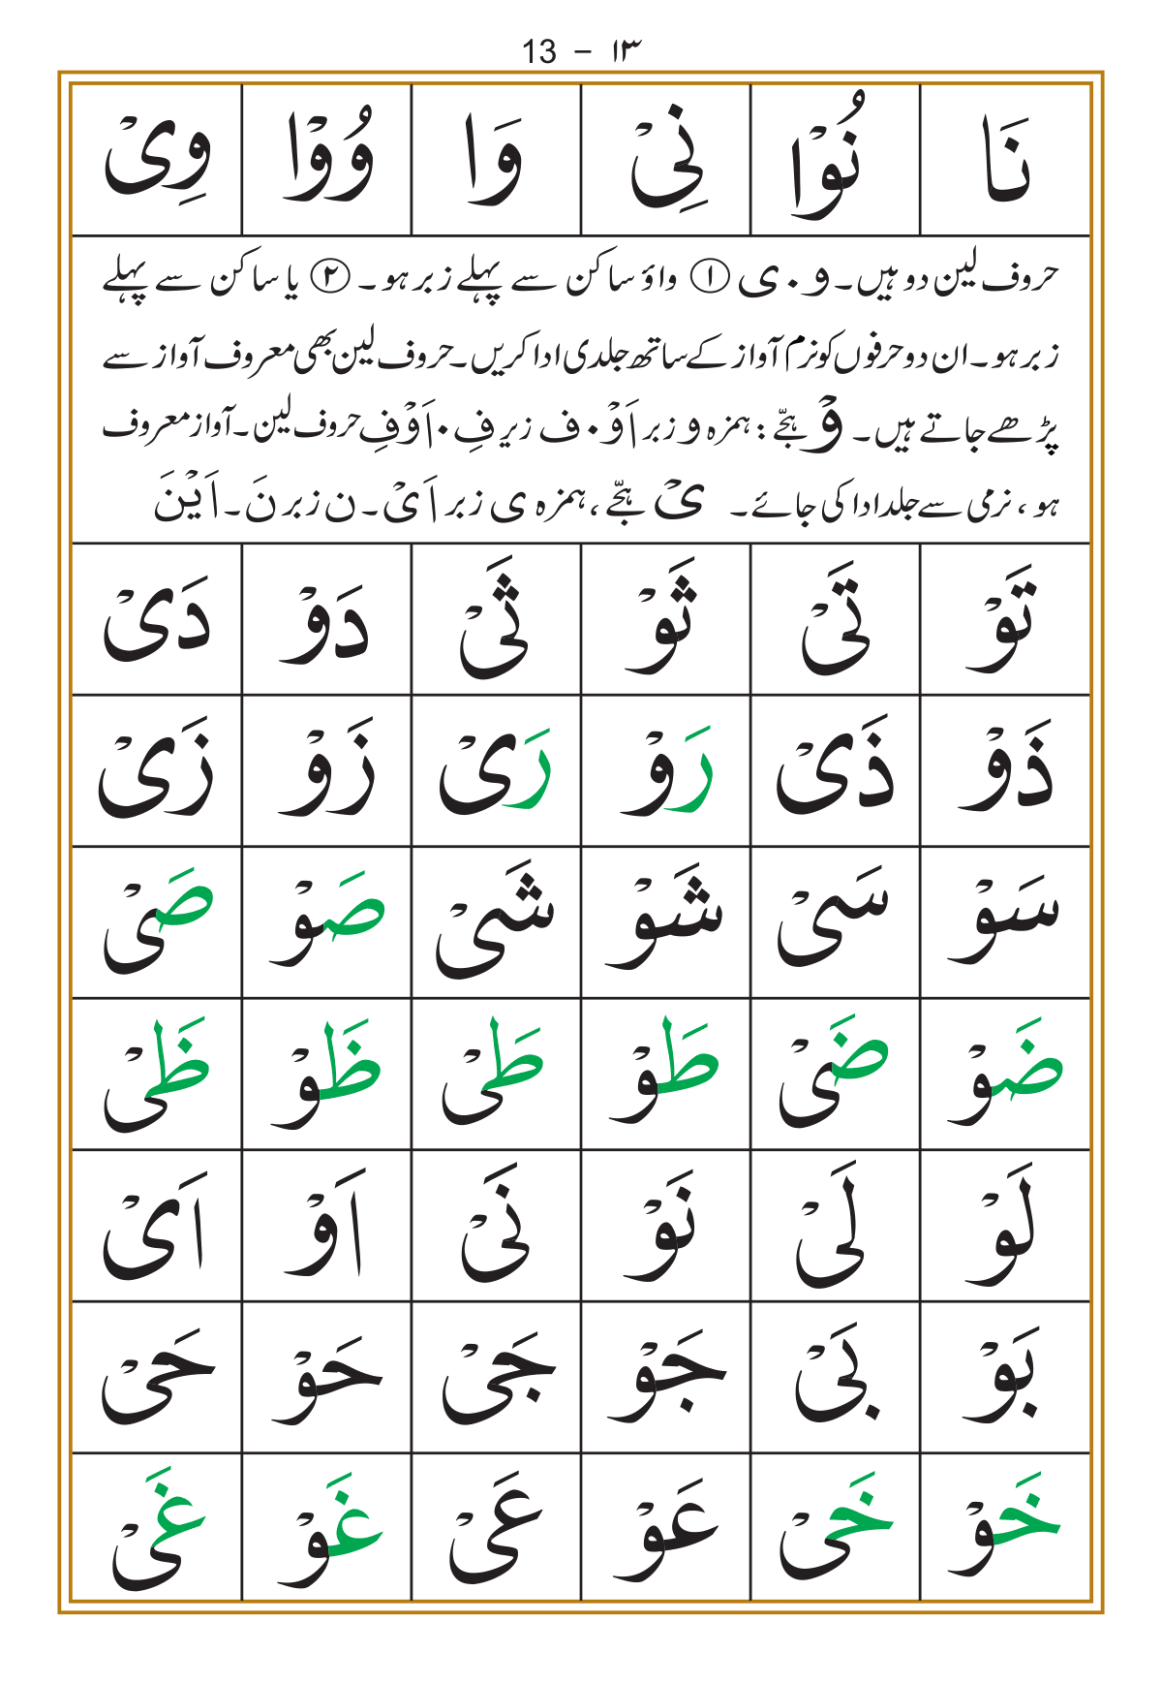 13 - ۱۳
نَا نُوْا نِیْ وَا وُوْا وِیْ
حروف لین دو ہیں۔ و ۰ ی ① واؤ ساکن سے پہلے زبر ہو۔ ② یا ساکن سے پہلے
زبر ہو۔ ان دو حرفوں کو نرم آواز کے ساتھ جلدی ادا کریں۔ حروف لین بھی معروف آواز سے
پڑھے جاتے ہیں۔ وْ ہجّے : ہمزہ و زبر اَوْ ۰ ف زیر فِ ۰ اَوْفِ حروف لین۔ آواز معروف
ہو ، نرمی سے جلد ادا کی جائے۔ یْ ہجّے ، ہمزہ ی زبر اَیْ۔ ن زبر نَ۔ اَیْنَ
تَوْ تَیْ ثَوْ ثَیْ دَوْ دَیْ
ذَوْ ذَیْ رَوْ رَیْ زَوْ زَیْ
سَوْ سَیْ شَوْ شَیْ صَوْ صَیْ
ضَوْ ضَیْ طَوْ طَیْ ظَوْ ظَیْ
لَوْ لَیْ نَوْ نَیْ اَوْ اَیْ
بَوْ بَیْ جَوْ جَیْ حَوْ حَیْ
خَوْ خَیْ عَوْ عَیْ غَوْ غَیْ